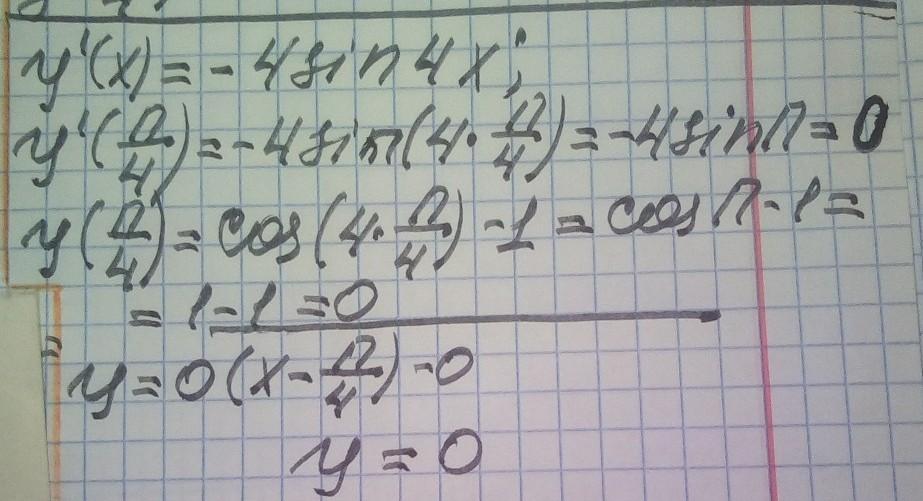 y'(x) = -4 sin 4x;
y'(π/4) = -4 sin(4·π/4) = -4 sin π = 0
y(π/4) = cos(4·π/4) - 1 = cos π - 1 =
= 1 - 1 = 0
y = 0(x - π/4) - 0
y = 0